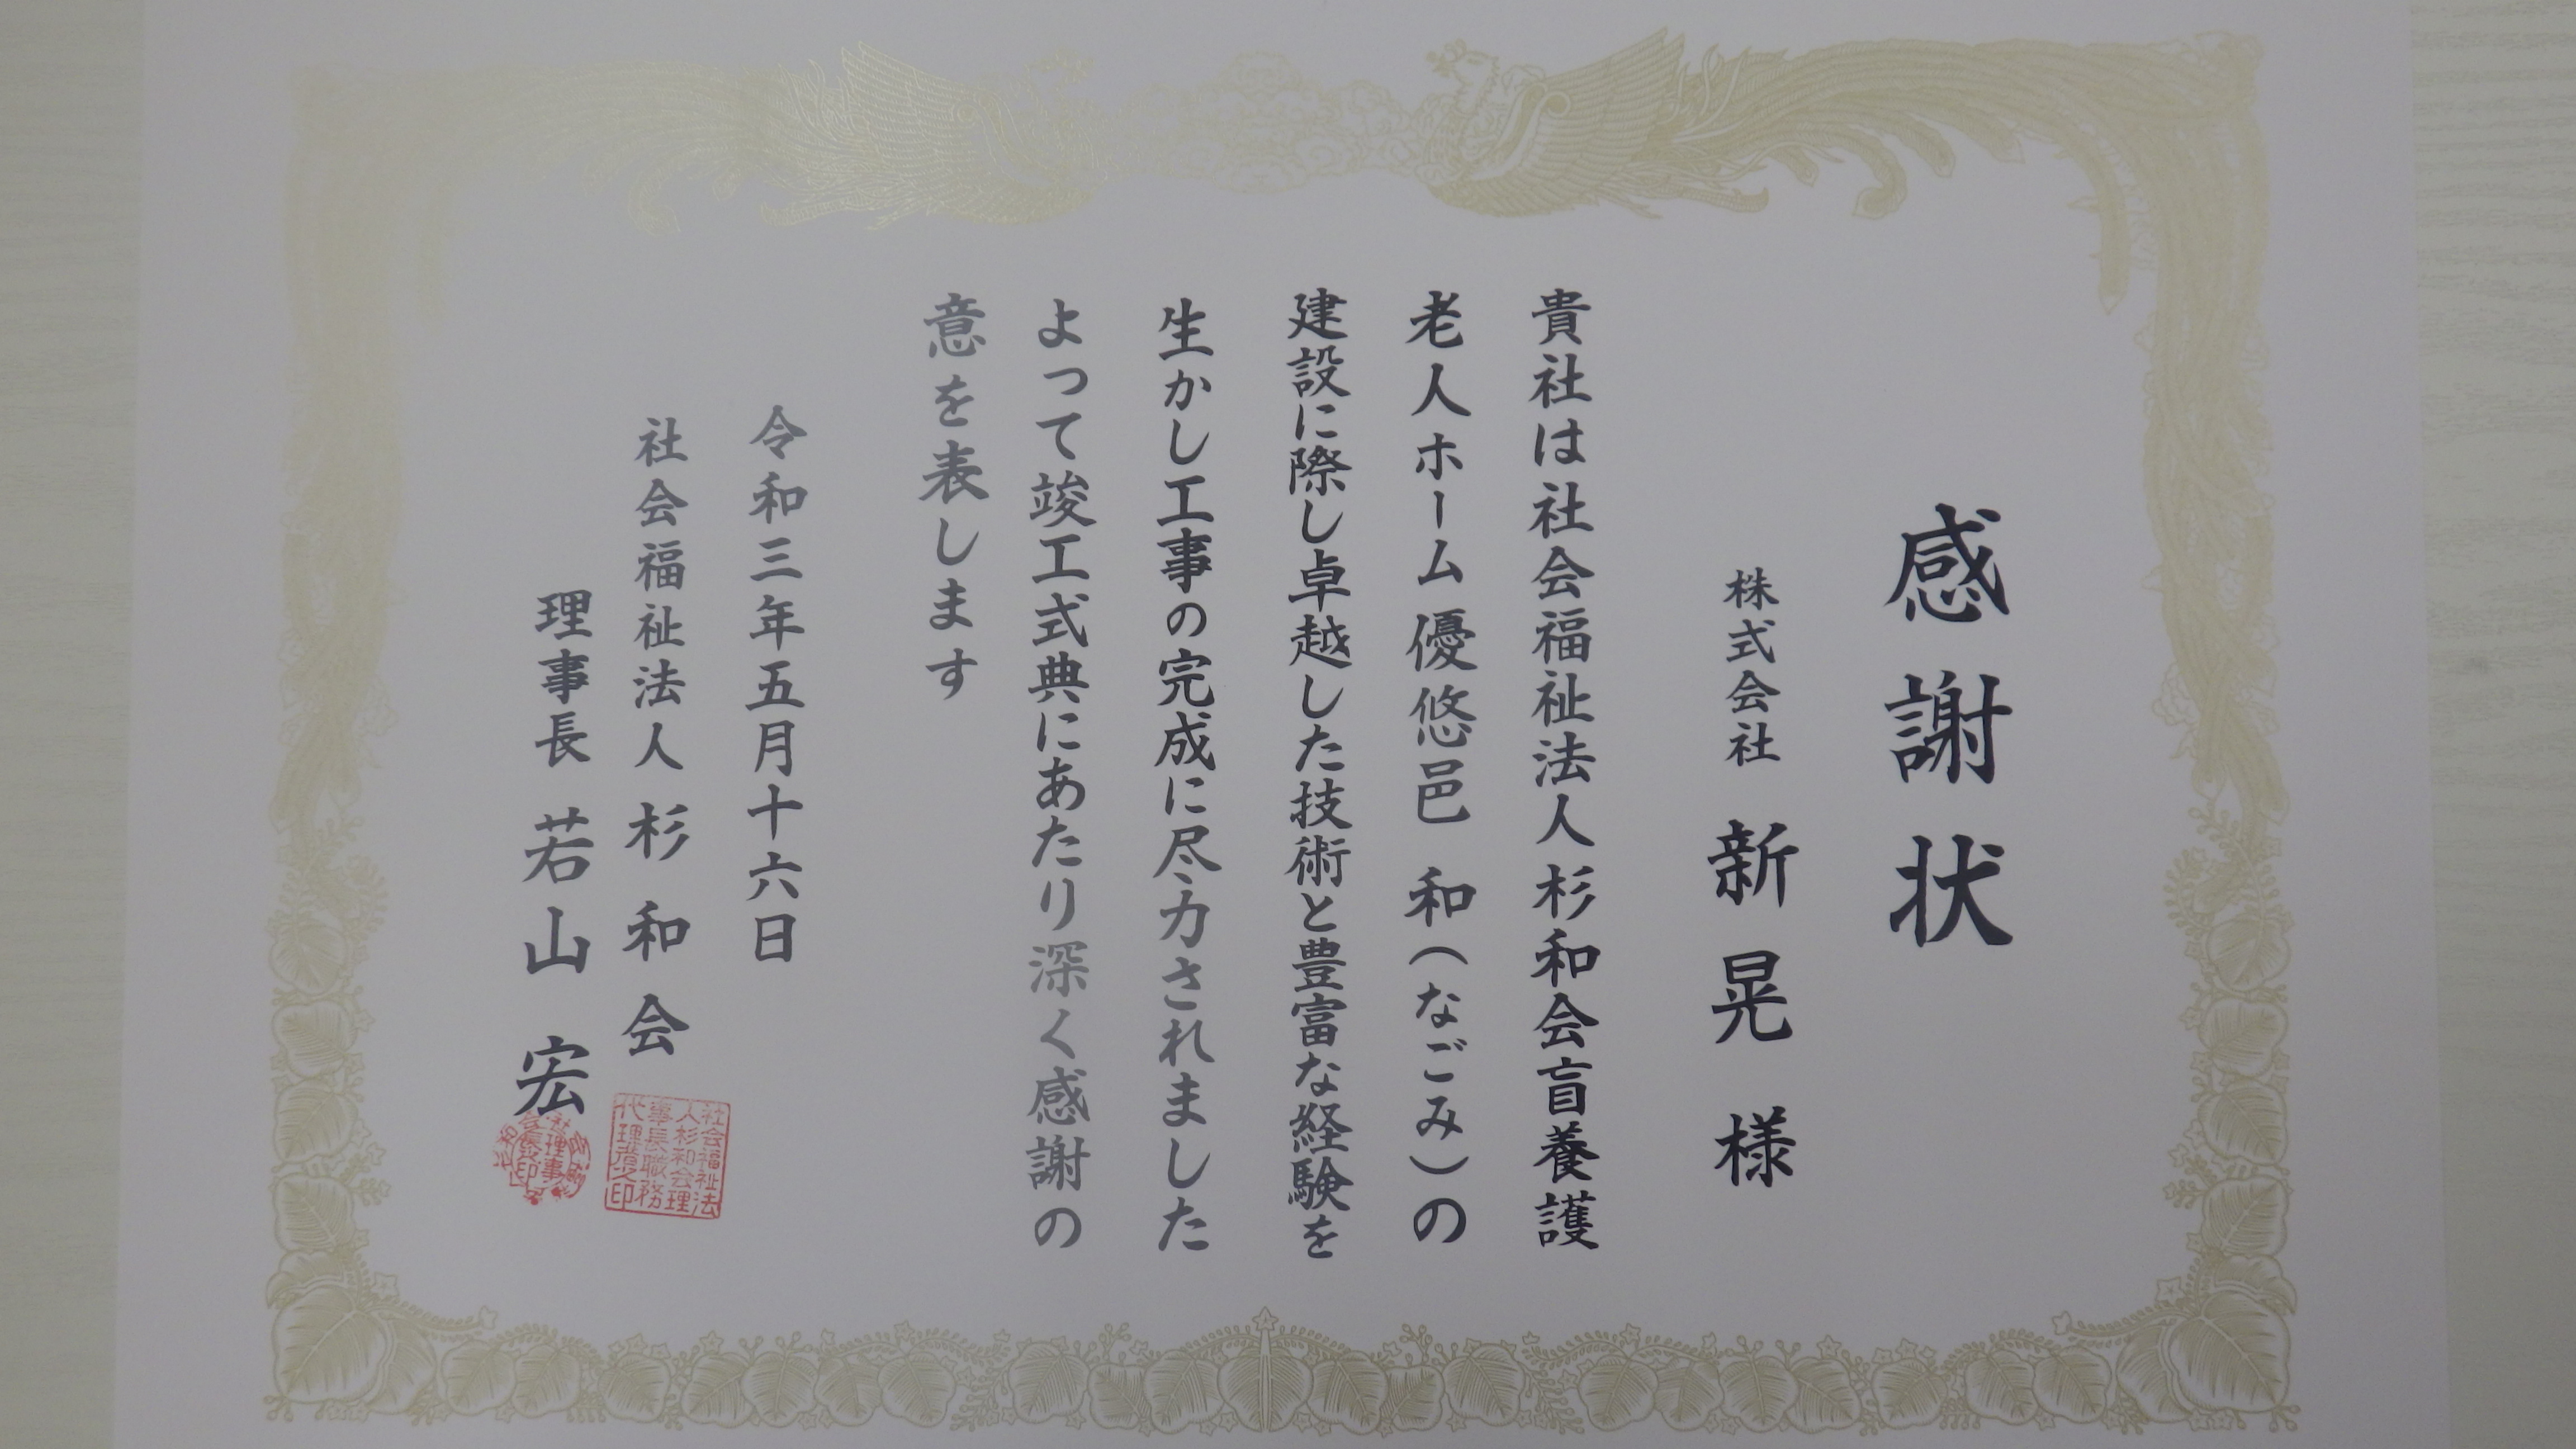 感謝状
株式会社 新晃 様
貴社は社会福祉法人杉和会盲養護
老人ホーム優悠邑 和(なごみ)の
建設に際し卓越した技術と豊富な経験を
生かし工事の完成に尽力されました
よって竣工式典にあたり深く感謝の
意を表します
令和三年五月十六日
社会福祉法人 杉和会
理事長 若山 宏
社会福祉法
人杉和会理
事長職務
代理者之印